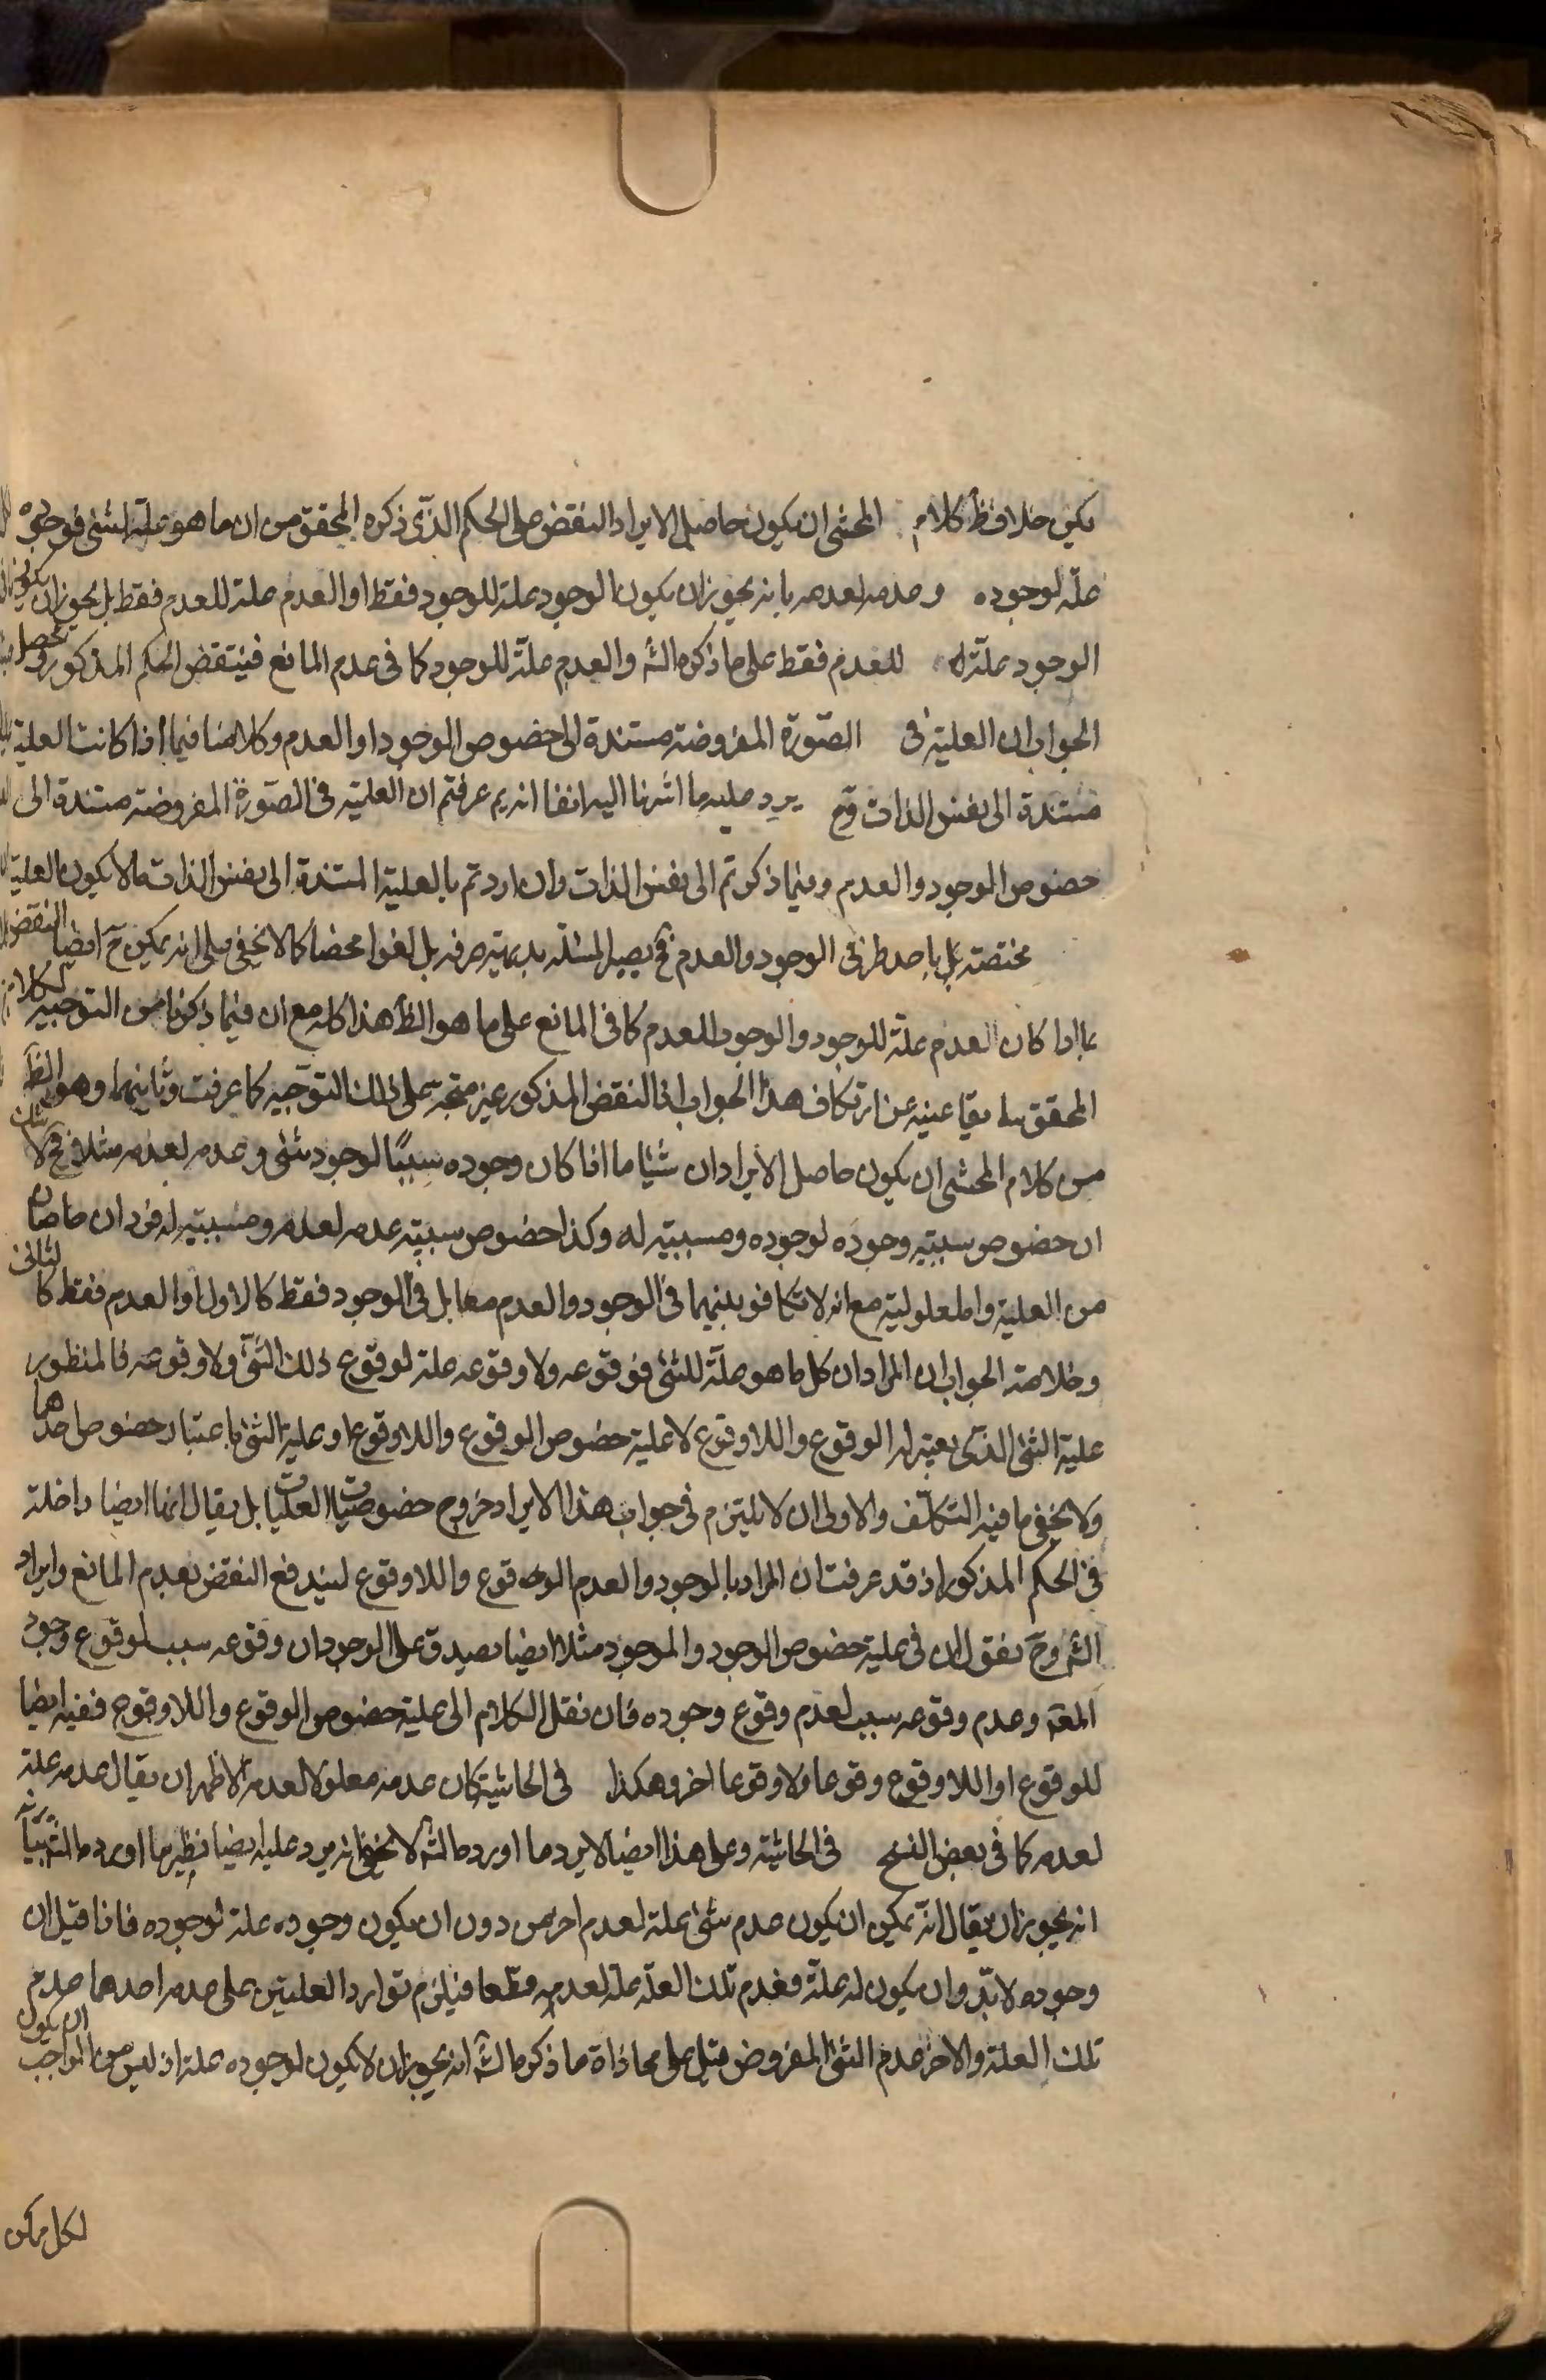 يكن خلاف ظ كلام المحشى ان يكون حاصل الايراد النقض على الحكم الذى ذكره المحقق من ان ما هو علة لشئ فوجوده
علة لوجوده وعدمه لعدمه بانه يجوز ان يكون الوجود علة للوجود فقط او العدم علة للعدم فقط بل يجوز ان يكون
الوجود علة له للعدم فقط على ما ذكره الش والعدم علة للوجود كما فى عدم المانع فينتقض الحكم المذكور ومحصل
الجواب ان العلية فى الصورة المفروضة مستندة الى خصوص الوجود او العدم وكلامنا فيما اذا كانت العلية
مستندة الى نفس الذات وح يرد عليه ما اشرنا اليه انفا انه بم عرفتم ان العلية فى الصورة المفروضة مستندة الى
خصوص الوجود والعدم وفيما ذكرتم الى نفس الذات وان اردتم بالعلية المستندة الى نفس الذات ما لا يكون العلية
مختصة بل باحد طرفى الوجود والعدم فح يصير المسئلة بديهية صرفه بل لغوا محضا كما لا يخفى على انه يمكن ح ايضا النقض
بما اذا كان العدم علة للوجود والوجود للعدم كما فى المانع على ما هو الظ هذا كله مع ان فيما ذكرنا من التوجيه لكلام
المحقق سابقا غنية عن ارتكاب هذا الجواب اذ النقض المذكور غير متجه على ذلك التوجيه كما عرفت وثانيهما وهو الظ
من كلام المحشى ان يكون حاصل الايراد ان شيئا ما اذا كان وجوده سببا لوجود شئ وعدمه لعدمه مثلا فح لا شك
ان خصوص سببية وجوده لوجوده ومسببيته له وكذا خصوص سببية عدمه لعدمه ومسببيته له فردان خاصان
من العلية والمعلولية مع انه لا تكافو بينهما فى الوجود والعدم معا بل فى الوجود فقط كالاول او العدم فقط كالثانى
وخلاصة الجواب ان المراد ان كل ما هو علة للشئ فوقوعه ولا وقوعه علة لوقوع ذلك الشئ ولا وقوعه فالمنظور
علية الشئ الذى يعتبر له الوقوع واللاوقوع لا علية خصوص الوقوع واللاوقوع او علية الشئ باعتبار خصوص احدهما
ولا يخفى ما فيه التكلف والاولى ان لا يلتزم فى جواب هذا الايراد خروج خصوصيات العليات بل يقال انها ايضا داخلة
فى الحكم المذكور اذ قد عرفت ان المراد بالوجود والعدم الوقوع واللاوقوع ليندفع النقض بعدم المانع وايراد
الش وح نقول ان فى علية خصوص الوجود والموجود مثلا ايضا يصدق على الوجود ان وقوعه سبب لوقوع وجود
المعه وعدم وقوعه سبب لعدم وقوع وجوده فان نقل الكلام الى علية خصوص الوقوع واللاوقوع ففيه ايضا
للوقوع او اللاوقوع وقوعا ولا وقوعا اخر وهكذا فى الحاشية كان عدمه معلولا لعدمه الاظهر ان يقال عدمه علة
لعدمه كما فى بعض النسخ فى الحاشية وعلى هذا ايضا لا يرد ما اورده الش لا يخفى انه يرد عليه ايضا نظير ما اورده الش
انه يجوز ان يقال انه يمكن ان يكون عدم شئ علة لعدم اخر من دون ان يكون وجوده علة لوجوده فاذا قيل ان
وجوده لا بد وان يكون له علة فعدم تلك العلة علة لعدمه قطعا فيلزم توارد العلتين على عدمه احدهما عدم
تلك العلة والاخر عدم الشئ المفروض قيل على محاذاة ما ذكره الش انه يجوز ان لا يكون لوجوده علة اذ ليس الواجب ان يكون
لكل ممكن